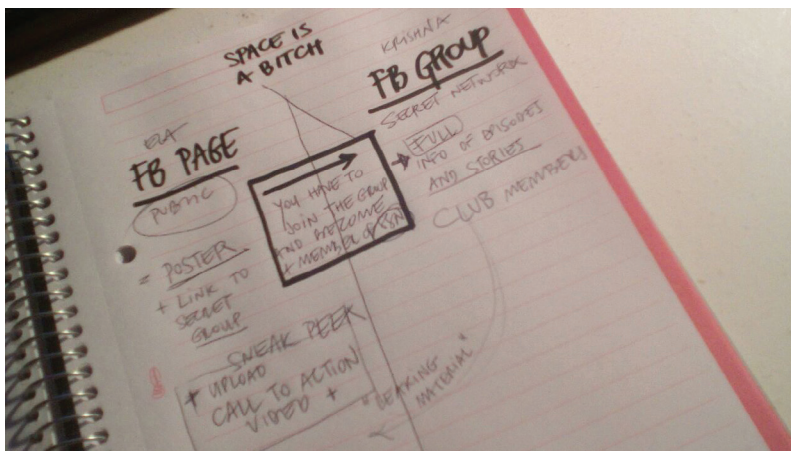 SPACE IS
A BITCH
ELA
FB PAGE
PUBLIC
= POSTER
+ LINK TO
SECRET
GROUP
SNEAK PEEK
+ UPLOAD
CALL TO ACTION
VIDEO +
YOU HAVE TO
JOIN THE GROUP
AND BECOME
A MEMBER OF
KRISHNA
FB GROUP
SECRET NETWORK
FULL
INFO OF EPISODES
AND STORIES
CLUB MEMBERS
"LEAKING
MATERIAL"